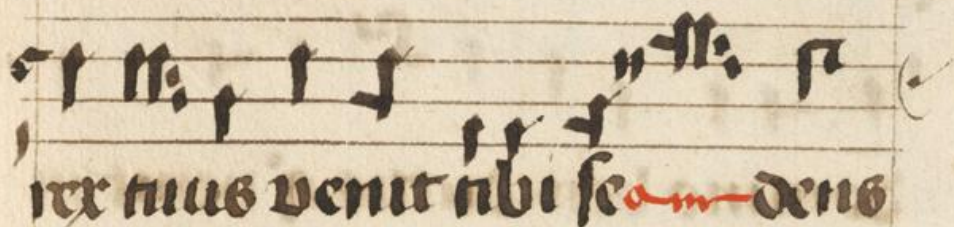 rex tuus venit tibi se dens